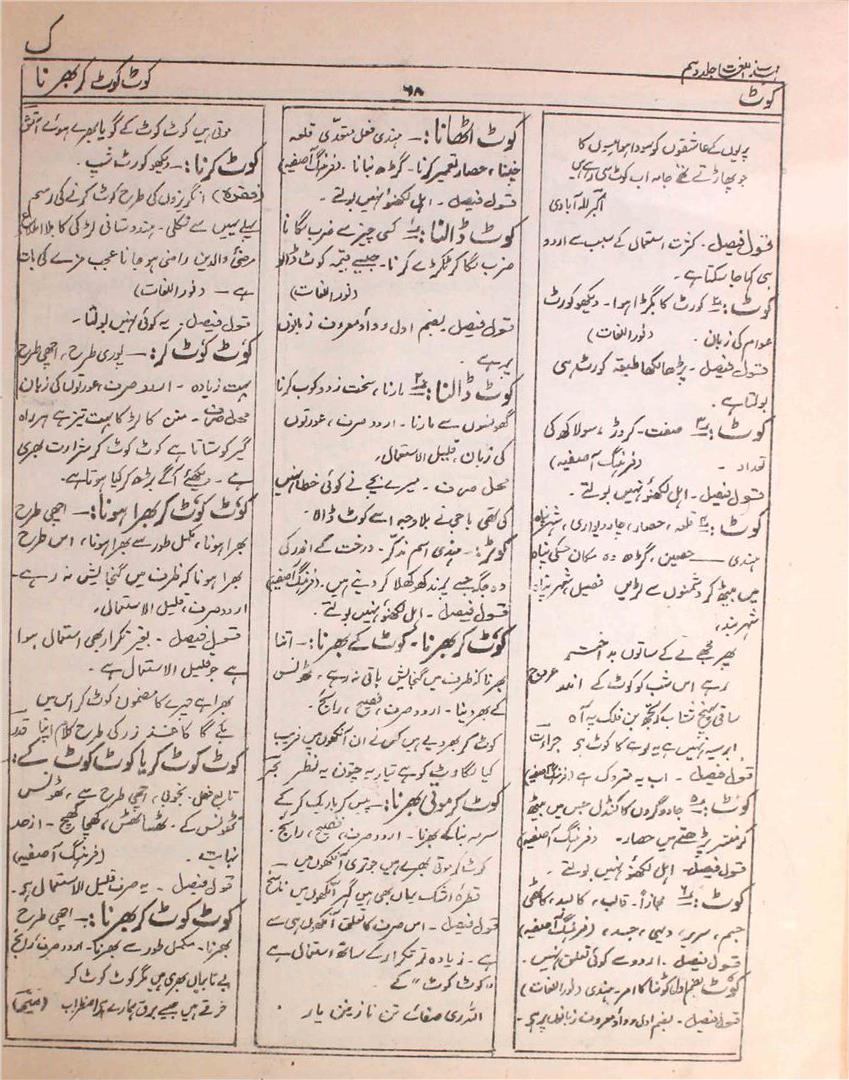 ک
مہذب اللغت (جلد دہم
کوٹ
۶۸
کوٹ کوٹ کر بھرنا
پریوں کے عاشقوں کو سودا ہوا مسوں کا
جو پھاڑتے تھے جامہ اب کوٹ سی رہے ہیں
اکبر الہ آبادی
قول فیصل۔ کثرت استعمال کے سبب سے اردو
ہی کہا جا سکتا ہے۔
کوٹ :۔ کورٹ کا بگڑا ہوا۔ دیکھو کورٹ
عوام کی زبان۔ (نور اللغات)
قول فیصل۔ پڑھا لکھا طبقہ کورٹ ہی
بولتا ہے۔
کوٹ :۔ صفت۔ کروڑ، سو لاکھ کی
تعداد۔ (فرہنگ آصفیہ)
قول فیصل۔ اہل لکھنؤ نہیں بولتے۔
کوٹ :۔ قلعہ، حصار، چار دیواری، شہر پناہ
ہندی۔ حصین، گڑھ وہ مکان جسکی پناہ
میں بیٹھ کر دشمنوں سے لڑیں فصیل شہر پناہ
شہر بند،
پھر مجھے نے کے ساتوں بد اختر
رہے اس شب کو کوٹ کے اندر
ساقی پہنچ شتاب کہ تجھ بن فلک پہ آہ
ابر سیہ نہیں ہے یہ لوہے کا کوٹ ہے جرأت
قول فیصل۔ اب یہ متروک ہے (فرہنگ آصفیہ)
کوٹ :۔ جادوگروں کا کنڈل جس میں بیٹھ
کر منتر پڑھتے ہیں حصار۔ (فرہنگ آصفیہ)
قول فیصل۔ اہل لکھنؤ نہیں بولتے۔
کوٹ :۔ مجازاً۔ قالب، کالبد، کاٹھی
جسم، سریر، دیہی، جسد، (فرہنگ آصفیہ)
قول فیصل۔ اردو سے کوئی تعلق نہیں۔
کوٹ بضم اول کوٹنا کا امر۔ ہندی (نور اللغات)
قول فیصل۔ بضم اول و واؤ معروف زبانوں پر ہے۔
کوٹ اٹھانا :۔ ہندی فعل متعدی قلعہ
چننا، حصار تعمیر کرنا۔ گڑھ بنانا۔ (فرہنگ آصفیہ)
قول فیصل۔ اہل لکھنؤ نہیں بولتے۔
کوٹ ڈالنا :۔ کسی چیز سے ضرب لگانا
ضرب لگا کر ٹکڑے کرنا۔ جیسے قیمہ کوٹ ڈالو
(نور اللغات)
قول فیصل بضم اول و واؤ معروف زبانوں
پر ہے۔
کوٹ ڈالنا :۔ مارنا، سخت زد و کوب کرنا
گھونسوں سے مارنا۔ اردو صرف، عورتوں
کی زبان، قلیل الاستعمال۔
محل صرف۔ میرے بچے نے کوئی خطا نہیں
کی تھی باجی نے بلا وجہ اسے کوٹ ڈالا۔
کوٹر :۔ ہندی اسم مذکر۔ درخت کے اندر کی
وہ جگہ جسے پرند کھوکھلا کر دیتے ہیں۔ (فرہنگ آصفیہ)
قول فیصل۔ اہل لکھنؤ نہیں بولتے۔
کوٹ کر بھرنا۔ کوٹ کے بھرنا :۔ اتنا
بھرنا کہ ظرف میں گنجایش باقی نہ رہے۔ ٹھونس
کے بھر دینا۔ اردو صرف، فصیح، رائج۔
کوٹ کر بھر دیے ہیں کس نے ان آنکھوں میں فریب
کیا لگاوٹ کو ہے تیار یہ چتون یہ نظر
کوٹ کر موتی بھرنا :۔ پیس کر باریک کر کے
سرمہ بنا کے بھرنا۔ اردو صرف، فصیح، رائج۔
کوٹ کر موتی بھرے ہیں جو تری آنکھوں میں
قطرۂ اشک یہاں بھی ہیں گہر آنکھوں میں ناسخ
قول فیصل۔ اس صرف کا تعلق آنکھوں ہی سے
ہے۔ زیادہ تر تکرار کے ساتھ استعمال ہے
"کوٹ کوٹ" کے۔
اللہ ری صفائے تن نازنین یار
موتی ہیں کوٹ کوٹ کے گویا بھرے ہوئے آتش
کوٹ کرنا :۔ دیکھو کورٹ شپ۔
(فقرہ) انگریزوں کی طرح کوٹ کرنے کی رسم
پہلے یہیں سے نکلی۔ ہندوستانی لڑکی کا بلا اطلاع
مرضی والدین راضی ہو جانا عجیب مزے کی بات
ہے۔ (نور اللغات)
قول فیصل۔ یہ کوئی نہیں بولتا۔
کوٹ کوٹ کر :۔ پوری طرح، اچھی طرح
بہت زیادہ۔ اردو صرف، عورتوں کی زبان
محل صرف۔ منن کا لڑکا بہت تیز ہے ہر راہ
گیر کو ستاتا ہے کوٹ کوٹ کر شرارت بھری
ہے۔ دیکھئے آگے بڑھ کر کیا ہوتا ہے۔
کوٹ کوٹ کر بھرا ہونا :۔ اچھی طرح
بھرا ہونا، مکمل طور سے بھرا ہونا، اس طرح
بھرا ہونا کہ ظرف میں گنجایش نہ رہے۔
اردو صرف، قلیل الاستعمال۔
قول فیصل۔ بغیر تکرار بھی استعمال ہوا
ہے جو قلیل الاستعمال ہے۔
بھرا ہے تیرے کا مضمون کوٹ کر اس میں
بنے گا کاغذ زر کی طرح کلام اپنا قدر
کوٹ کوٹ کر یا کوٹ کوٹ کے :
تابع فعل۔ بخوبی، اچھی طرح سے، ٹھونس
ٹھونس کے۔ ٹھسا ٹھس، کھچا کھچ۔ از حد
نہایت۔ (فرہنگ آصفیہ)
قول فیصل۔ یہ صرف قلیل الاستعمال ہے۔
کوٹ کوٹ کر بھرنا :۔ اچھی طرح
بھرنا۔ مکمل طور سے بھرنا۔ اردو صرف، رائج
بے تابیاں بھری ہیں مگر کوٹ کوٹ کر
خرقے میں جیسے برق ہمارے ہے اضطراب (میر)